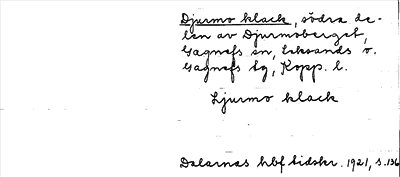 Djurmo klack, södra de-
len av Djurmoberget,
Gagnefs sn, Leksands o.
Gagnefs tg, Kopp. l.
Ljurmo klack
Dalarnas hbf tidskr. 1921, s. 136